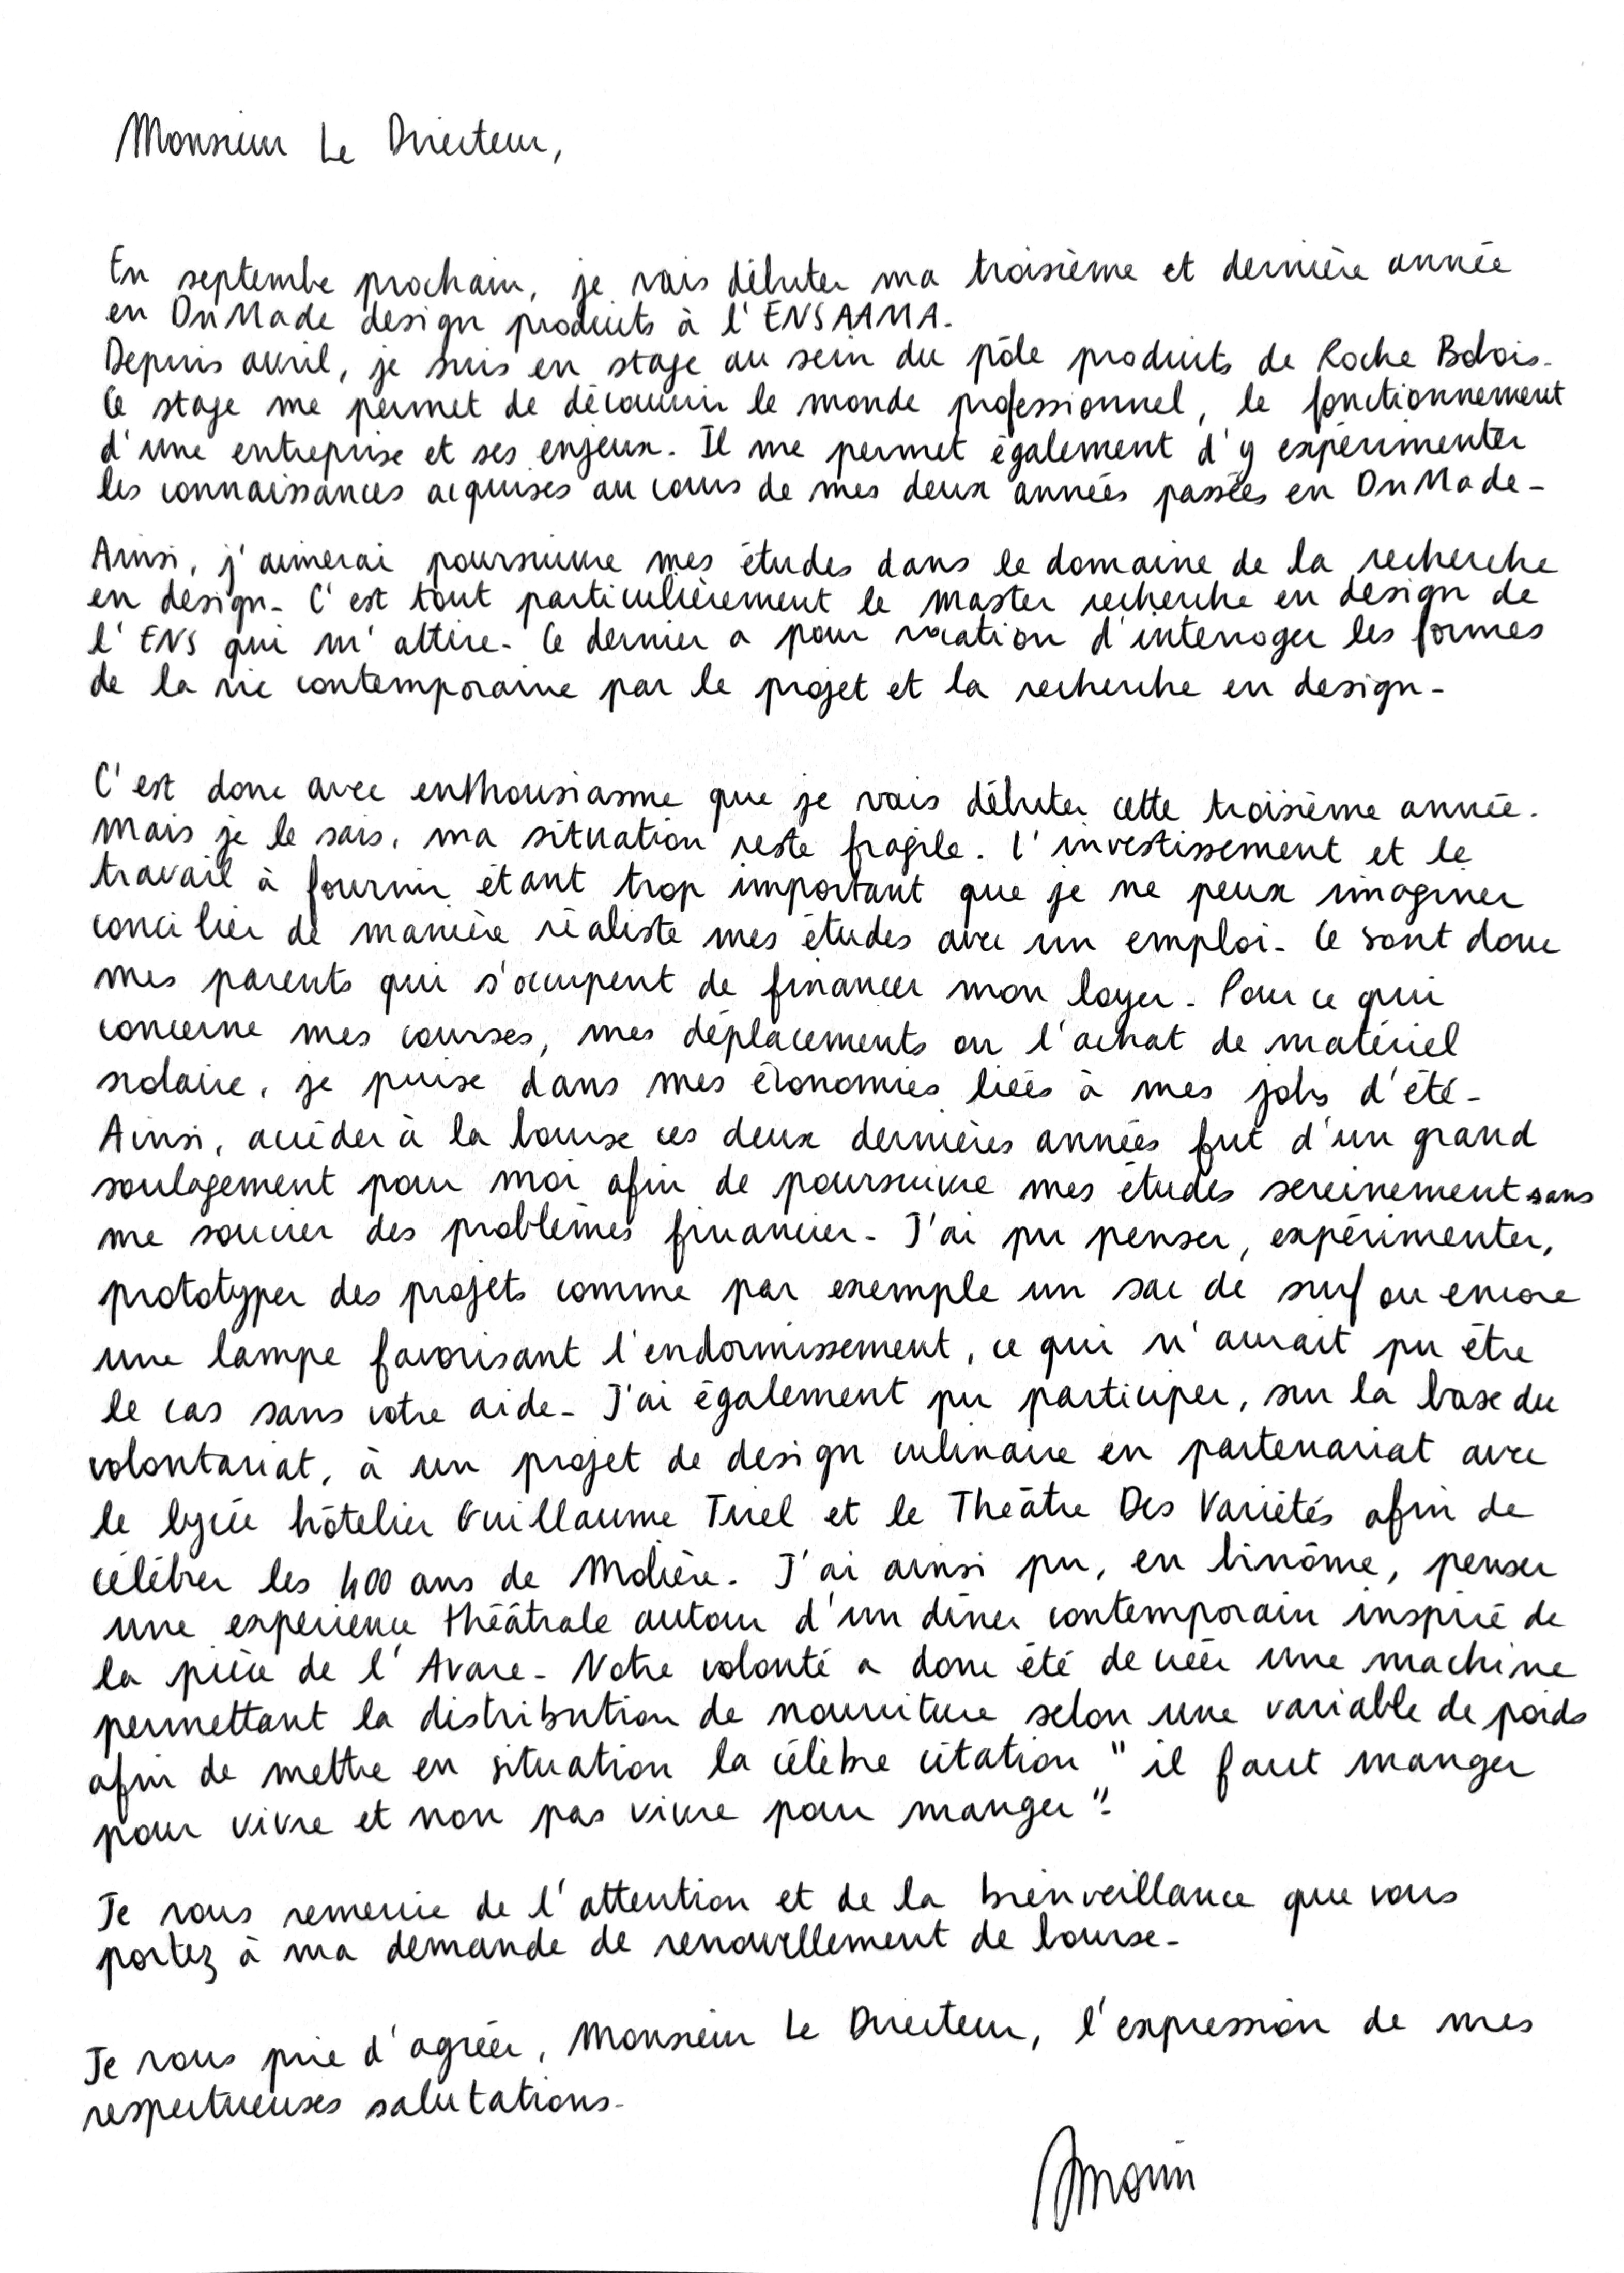 Monsieur Le Directeur,
En septembre prochain, je vais débuter ma troisième et dernière année
en DnMade design produits à l'ENSAAMA.
Depuis avril, je suis en stage au sein du pôle produits de Roche Bobois.
Ce stage me permet de découvrir le monde professionnel, le fonctionnement
d'une entreprise et ses enjeux. Il me permet également d'y expérimenter
les connaissances acquises au cours de mes deux années passées en DnMade.
Ainsi, j'aimerai poursuivre mes études dans le domaine de la recherche
en design. C'est tout particulièrement le master recherche en design de
l'ENS qui m'attire. Ce dernier a pour vocation d'interroger les formes
de la vie contemporaine par le projet et la recherche en design.
C'est donc avec enthousiasme que je vais débuter cette troisième année.
Mais je le sais, ma situation reste fragile. L'investissement et le
travail à fournir étant trop important que je ne peux imaginer
concilier de manière réaliste mes études avec un emploi. Ce sont donc
mes parents qui s'occupent de financer mon loyer. Pour ce qui
concerne mes courses, mes déplacements ou l'achat de matériel
scolaire, je puise dans mes économies liées à mes jobs d'été.
Ainsi, accéder à la bourse ces deux dernières années fut d'un grand
soulagement pour moi afin de poursuivre mes études sereinement sans
me soucier des problèmes financier. J'ai pu penser, expérimenter,
prototyper des projets comme par exemple un sac de surf ou encore
une lampe favorisant l'endormissement, ce qui n'aurait pu être
le cas sans votre aide. J'ai également pu participer, sur la base du
volontariat, à un projet de design culinaire en partenariat avec
le lycée hôtelier Guillaume Tirel et le Théâtre Des Variétés afin de
célébrer les 400 ans de Molière. J'ai ainsi pu, en binôme, penser
une expérience théâtrale autour d'un dîner contemporain inspiré de
la pièce de l'Avare. Notre volonté a donc été de créer une machine
permettant la distribution de nourriture selon une variable de poids
afin de mettre en situation la célèbre citation "il faut manger
pour vivre et non pas vivre pour manger".
Je vous remercie de l'attention et de la bienveillance que vous
portez à ma demande de renouvellement de bourse.
Je vous prie d'agréer, Monsieur Le Directeur, l'expression de mes
respectueuses salutations.